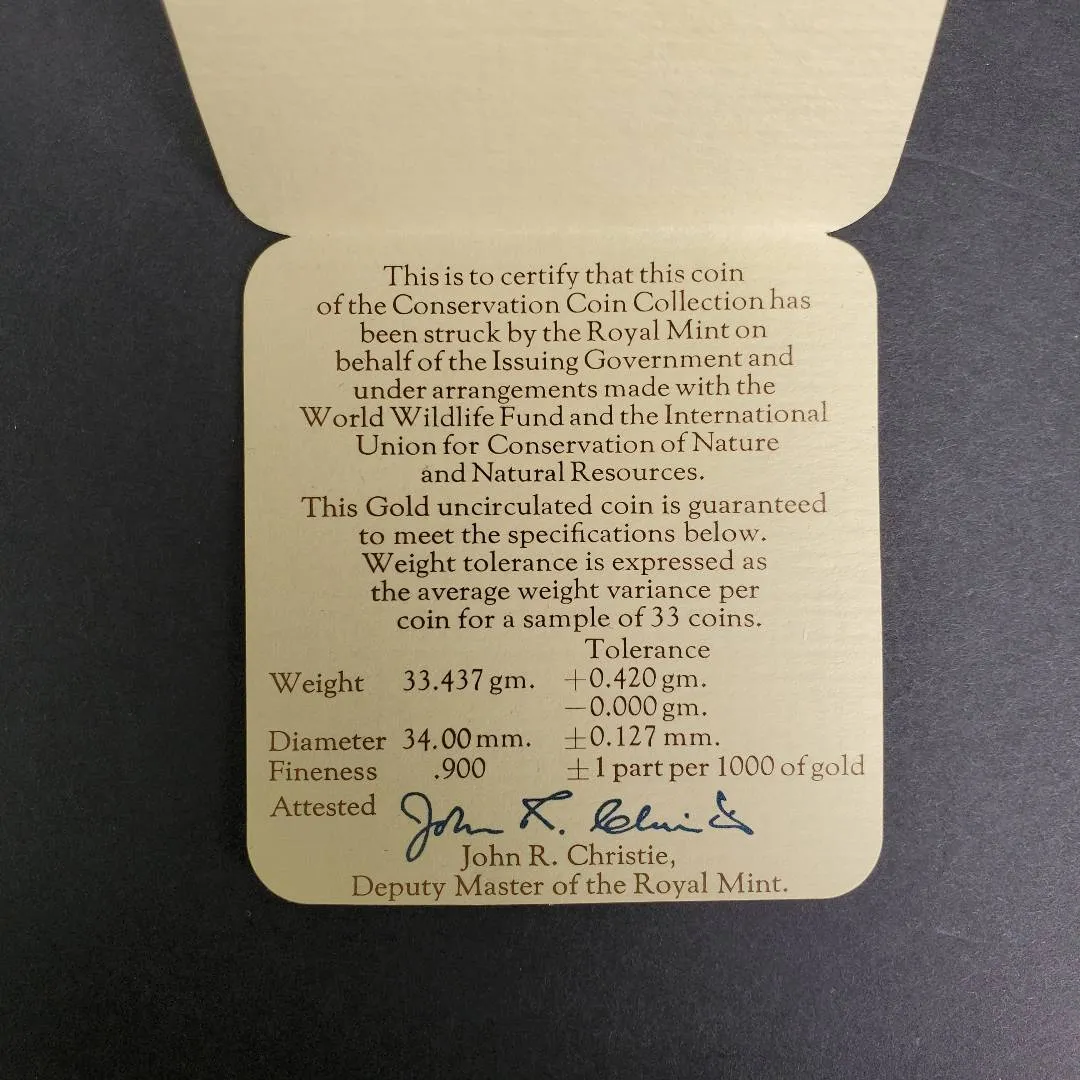 This is to certify that this coin
of the Conservation Coin Collection has
been struck by the Royal Mint on
behalf of the Issuing Government and
under arrangements made with the
World Wildlife Fund and the International
Union for Conservation of Nature
and Natural Resources.
This Gold uncirculated coin is guaranteed
to meet the specifications below.
Weight tolerance is expressed as
the average weight variance per
coin for a sample of 33 coins.
Tolerance
Weight 33.437 gm. +0.420 gm.
−0.000 gm.
Diameter 34.00 mm. ±0.127 mm.
Fineness .900 ±1 part per 1000 of gold
Attested John R. Christie
John R. Christie,
Deputy Master of the Royal Mint.